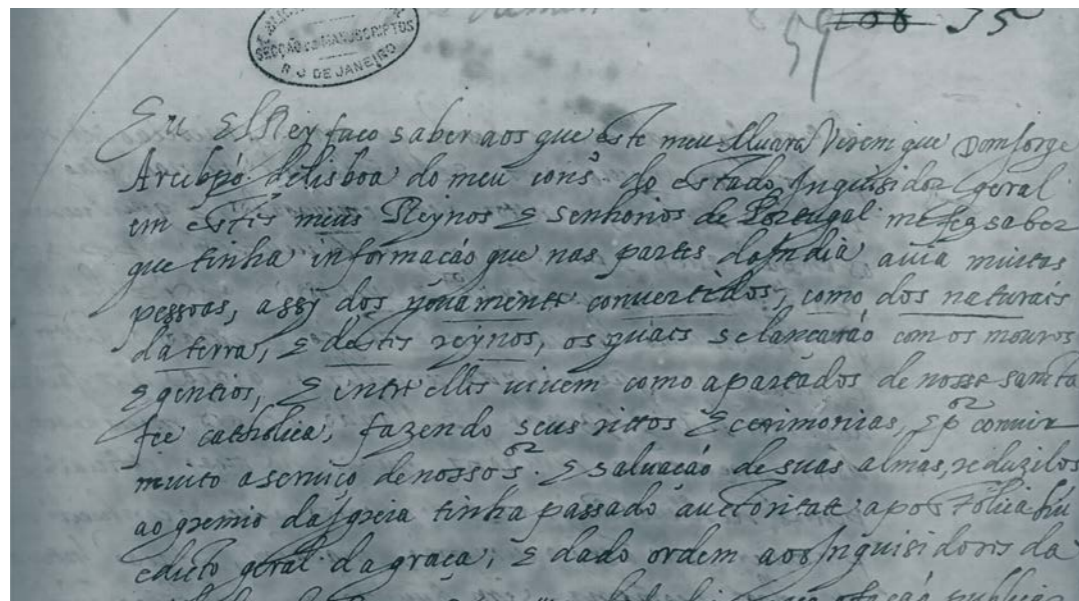 SECÇÃO DE MANUSCRIPTOS
RJ. DE JANEIRO
35
Eu ElRey faco saber aos que este meu Aluara Virem que Dom Jorge
Arcebpõ de lisboa do meu cons.º do estado, Inquisidor geral
em estes meus Reynos E senhorios de Portugal me fez saber
que tinha informacáo que nas partes da India auia muitas
pessoas, assy dos nouamente conuertidos, como dos naturais
da terra, E destes reynos, os quais se lancauáo com os mouros
E gentios, E entre elles uiuem como apartados de nossa santa
fee catholica, fazendo seus rittos E cerimonias, E p.or conuir
muito a seruiço de nosso s.or E saluacáo de suas almas, reduzilos
ao gremio da Igreia tinha passado auctoritate apostolica hũ
edicto geral da graça, E dado ordem aos Inquisidores da